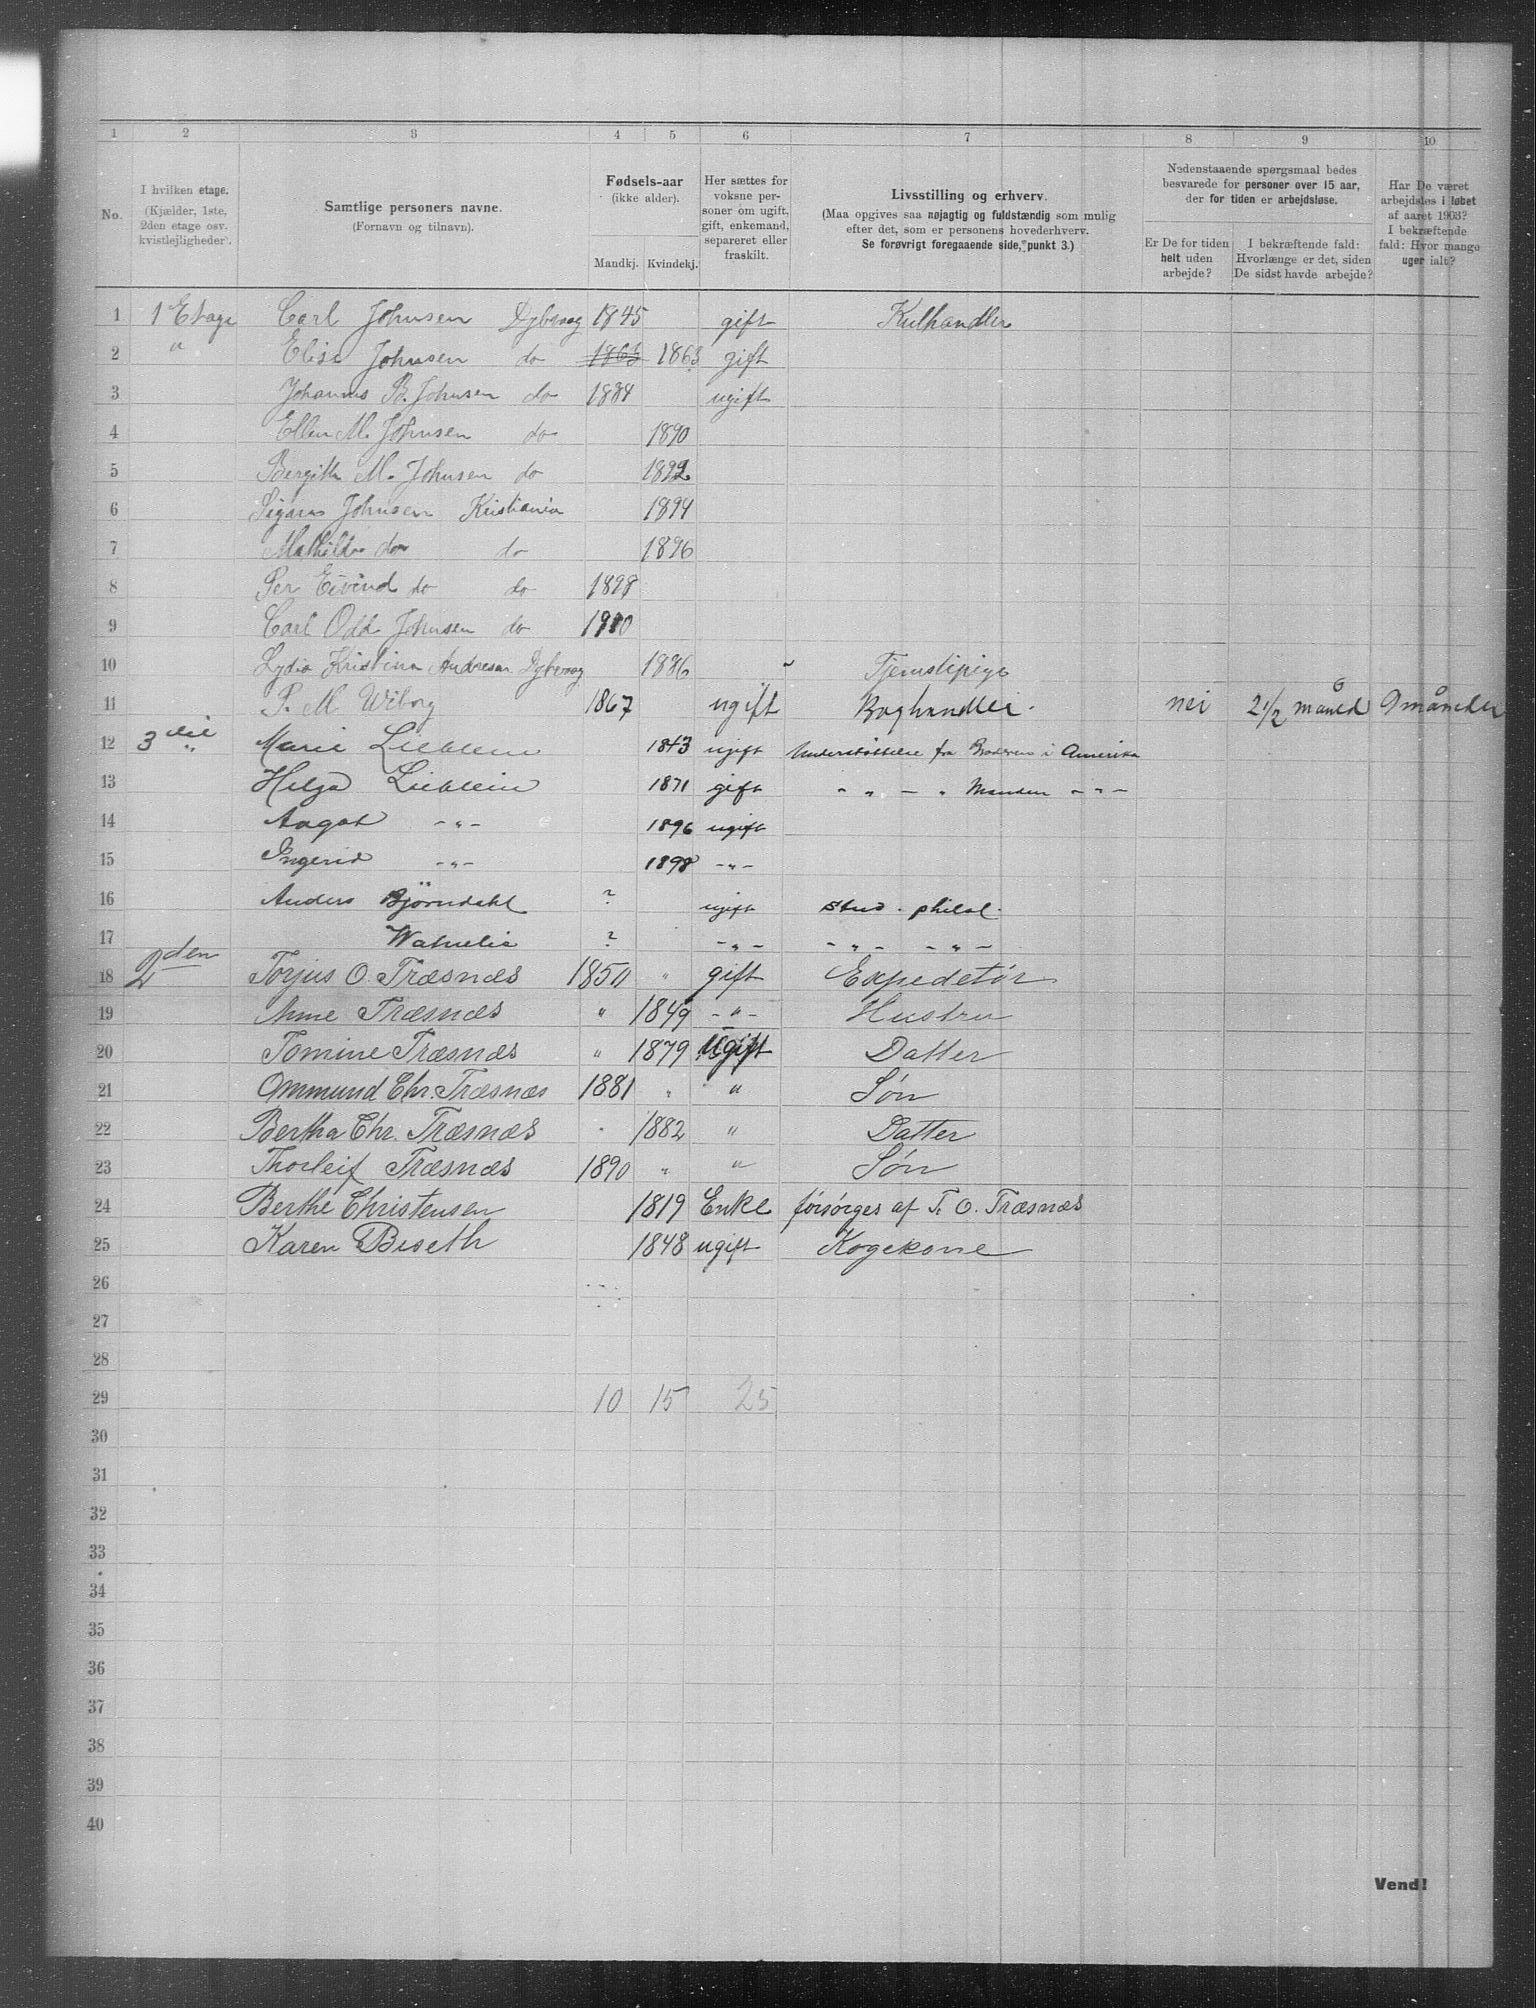 1 2 3 4 5 6 7 8 9 10
No.
I hvilken etage.
(Kjælder, 1ste,
2den etage osv.
kvistlejligheder).
Samtlige personers navne.
(Fornavn og tilnavn).
Fødsels-aar
(ikke alder).
Mandkj. Kvindekj.
Her sættes for
voksne per-
soner om ugift,
gift, enkemand,
separeret eller
fraskilt.
Livsstilling og erhverv.
(Maa opgives saa nøjagtig og fuldstændig som mulig
efter det, som er personens hovederhverv.
Se forøvrigt foregaaende side, punkt 3.)
Nedenstaaende spørgsmaal bedes
besvarede for personer over 15 aar,
der for tiden er arbejdsløse.
Er De for tiden
helt uden
arbejde?
I bekræftende fald:
Hvorlænge er det, siden
De sidst havde arbejde?
Har De været
arbejdsløs i løbet
af aaret 1903?
I bekræftende
fald: Hvor mange
uger ialt?
1 1 Etage Carl Johnsen Dybvaag 1845 gift Kulhandler
2 " Elise Johnsen do 1863 1863 gift
3 Johannes B. Johnsen do 1884 ugift
4 Ellen M. Johnsen do 1890
5 Bergith M. Johnsen do 1892
6 Johnsen Kristiania 1894
7 Mathilde do do 1896
8 Per Eivind do do 1898
9 Carl Odd Johnsen do 1900
10 Lydia Kristina Andresen Dybvaag 1886 Tjenstepige
11 P. M Wiborg 1867 ugift Boghandler. nei 2 1/2 måned 9 måneder
12 3die " Marie Lieblein 1843 ugift Understøttelse fra Broderen i Amerika
13 Helga Lieblein 1871 gift - " - " Manden - " -
14 Aagot - " - 1896 ugift
15 Ingerid - " - 1898 - " -
16 Anders Bjørndahl ? ugift stud. philol.
17 ? - " - - " - - " -
18 2den Torjus O. Træsnæs 1850 " gift Expeditør
19 Anne Træsnæs " 1849 - " - Hustru
20 Tomine Træsnæs " 1879 Ugift Datter
21 Ommund Chr. Træsnæs 1881 " " Søn
22 Bertha Chr. Træsnæs " 1882 " Datter
23 Thorleif Træsnæs 1890 " " Søn
24 Berthe Christensen 1819 Enke forsørges af T. O. Træsnæs
25 Karen Biseth 1848 ugift Kogekone
26
27
28
29 10 15 25
30
31
32
33
34
35
36
37
38
39
40
Vend!